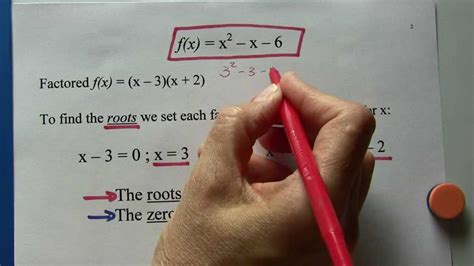 2
f(x) = x² – x – 6
3² - 3 -
Factored f(x) = (x – 3)(x + 2)
To find the roots we set each x:
x – 3 = 0 ; x = 3 – 2
The roots
The